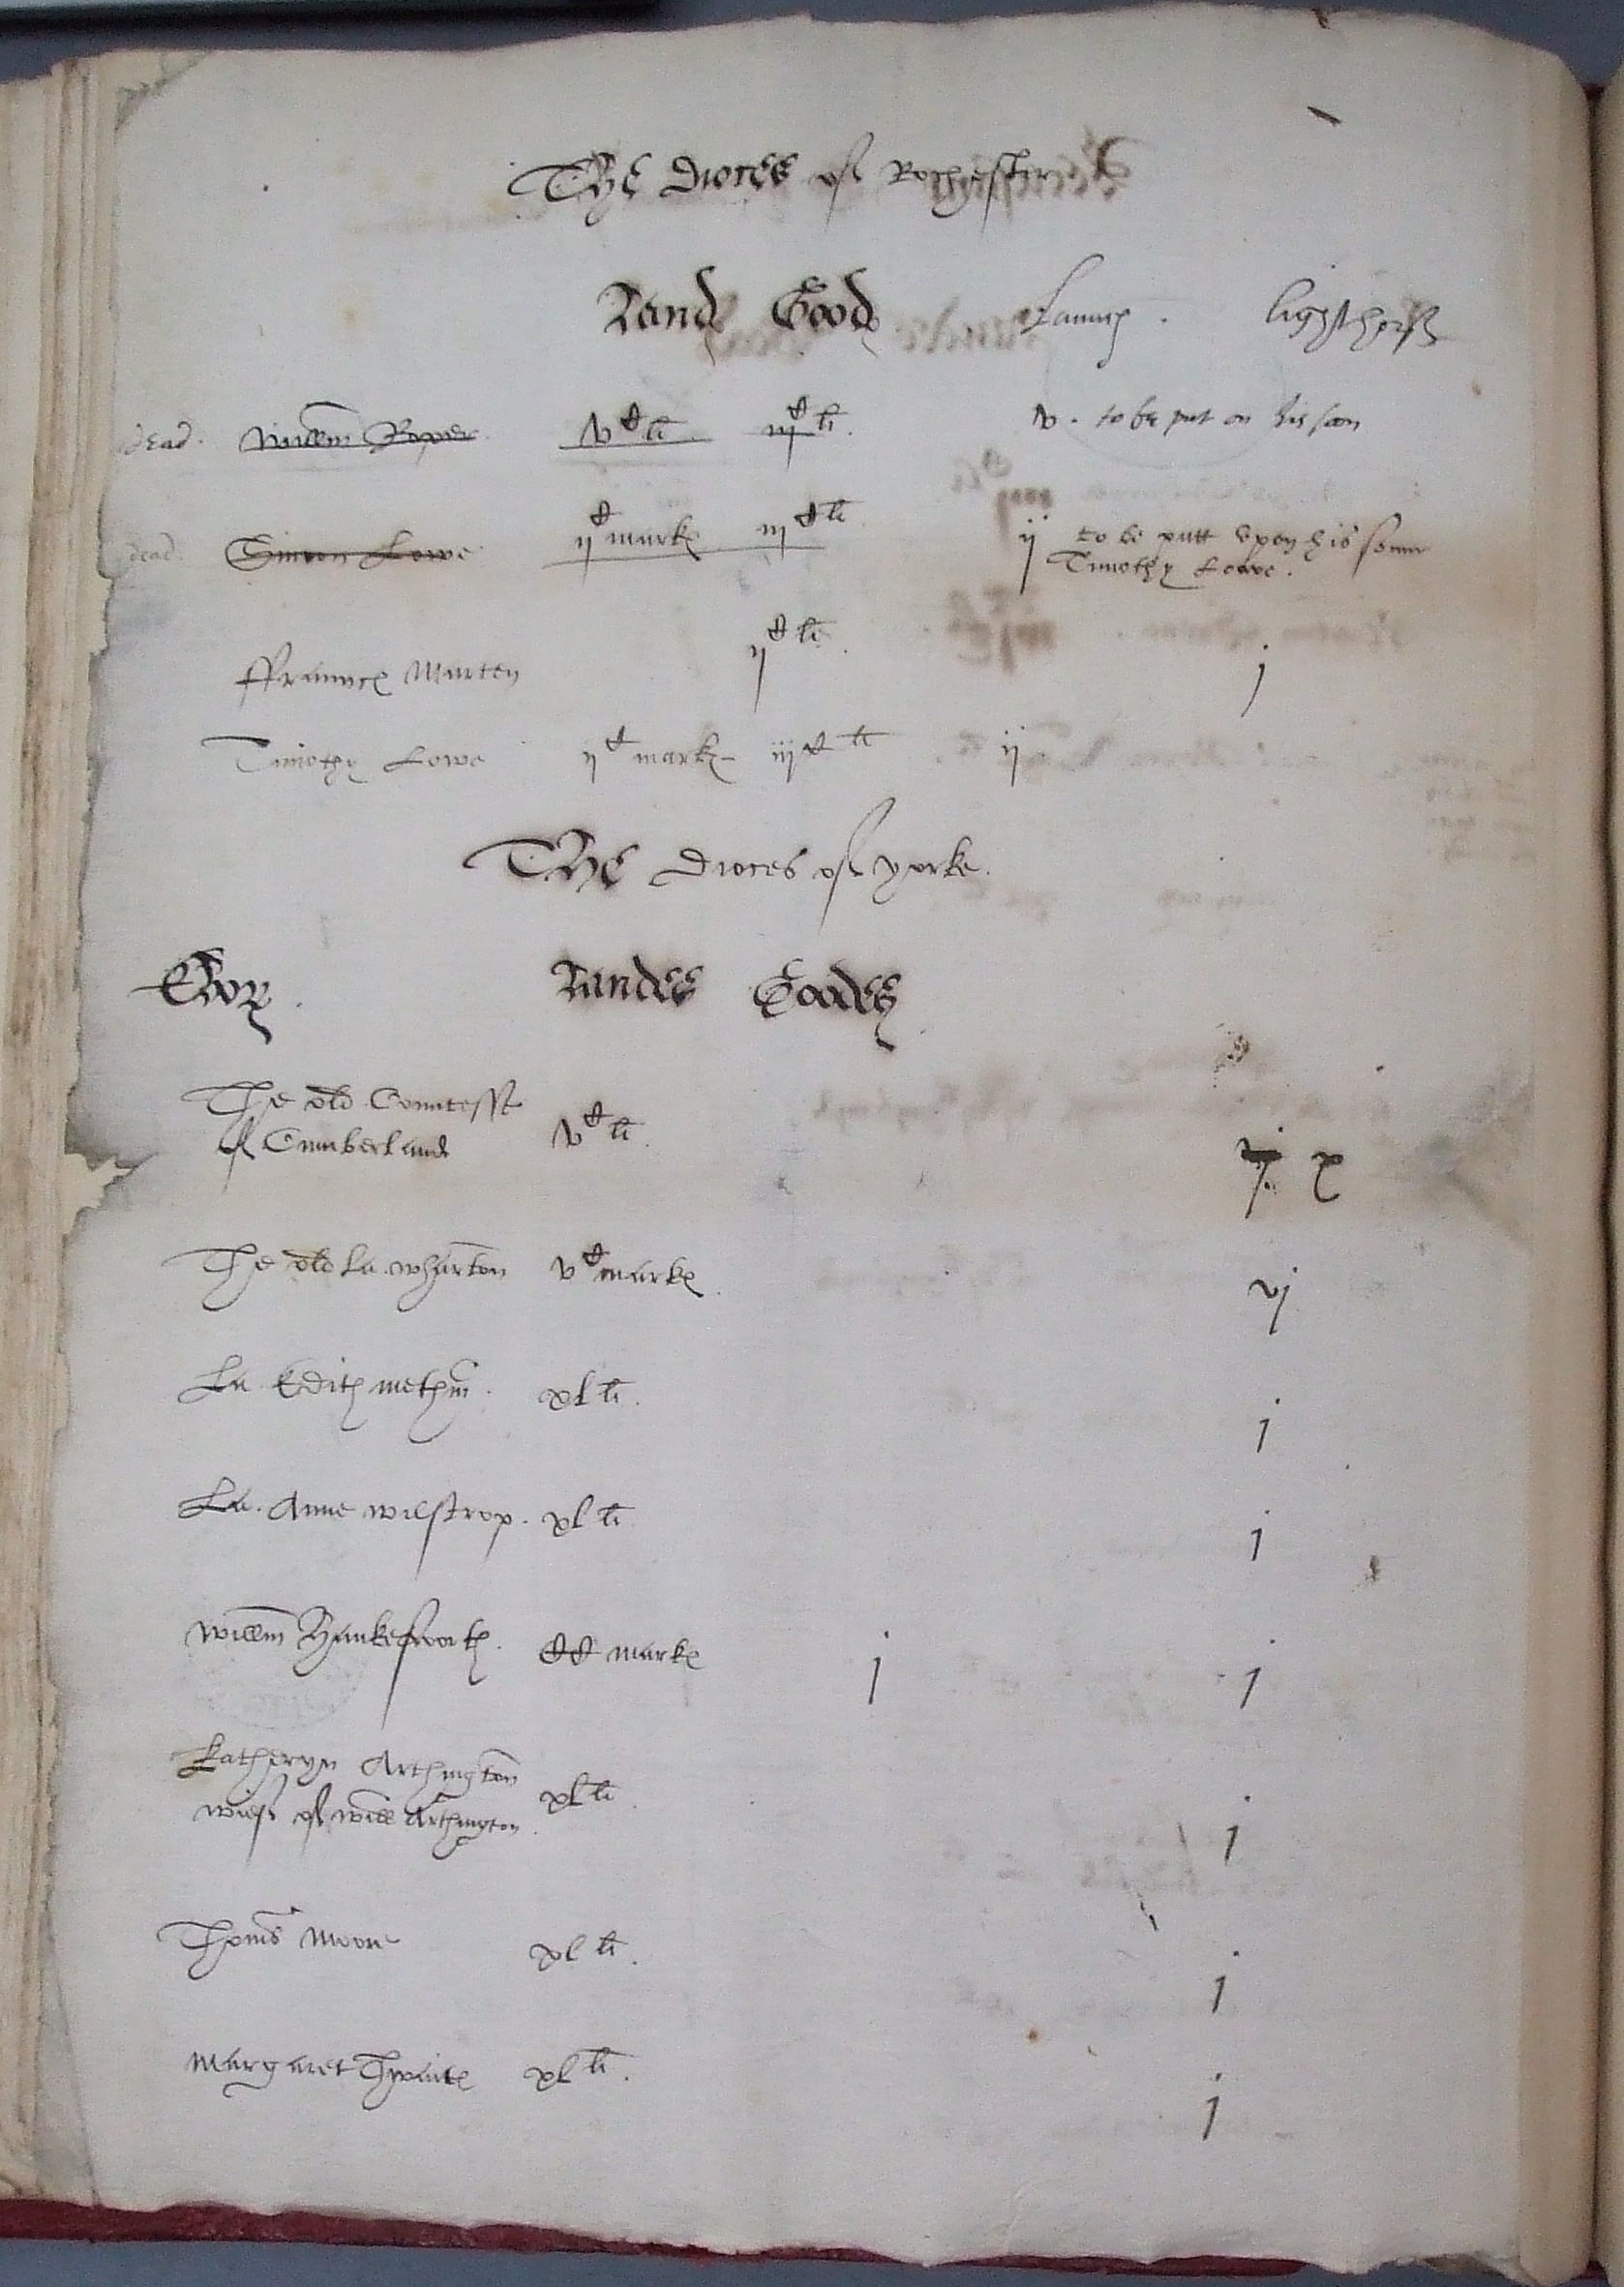 The Dioces of Rochester
Land Good Launc lighthorss
dead. Willm Roper vC li iijC li. v. to be put on his son
dead. Simon Lowe ijC mark iijC li ij to be putt vpon his sonn
Timothy Lowe.
ffraunce Marten ijC li. j
Timothy Lowe ijC mark iijC li ij
The Dioces of yorke.
Ebor. Landes Goodes
The old Countesse
of Cumberland vC li. x
The old La. wharton vC mark vj
La. Edith methm. xl li. j
La. Anne wilstrop. xl li j
Willm Hankesworth. CC mark j j
Katheryn Arthington
wief of Willm Arthington. xl li. j
Thoms Moore xl li. j
Margaret Thwaite xl li. j